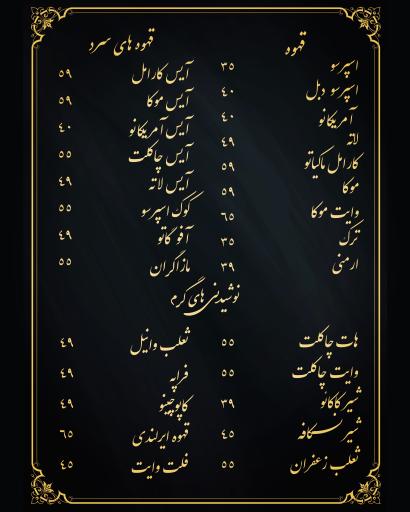 قهوه
اسپرسو ۳۵
اسپرسو دبل ۴۰
آمریکانو ۴۰
لاته ۴۹
کارامل ماکیاتو ۵۹
موکا ۵۹
وایت موکا ۶۵
ترک ۳۵
ارمنی ۳۹
قهوه های سرد
آیس کارامل ۵۹
آیس موکا ۵۹
آیس آمریکانو ۴۰
آیس چاکلت ۵۵
آیس لاته ۴۹
کوک اسپرسو ۵۵
آفوگاتو ۴۹
مازاگران ۵۵
نوشیدنی های گرم
هات چاکلت ۵۵
وایت چاکلت ۵۵
شیر کاکائو ۳۹
شیر نسکافه ۴۵
ثعلب زعفران ۵۵
ثعلب وانیل ۴۹
فراپه ۴۹
کاپوچینو ۴۹
قهوه ایرلندی ۶۵
فلت وایت ۴۵